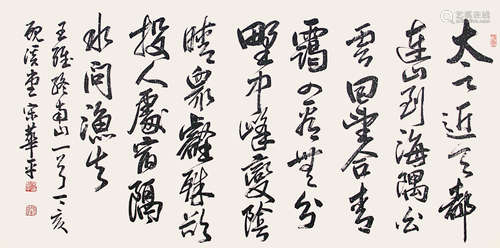 太乙近天都
連山到海隅白
雲回望合青
靄入看無分
野中峰變陰
晴眾壑殊欲
投人處宿隔
水問漁夫
王維終南山一首丁亥
宋華平